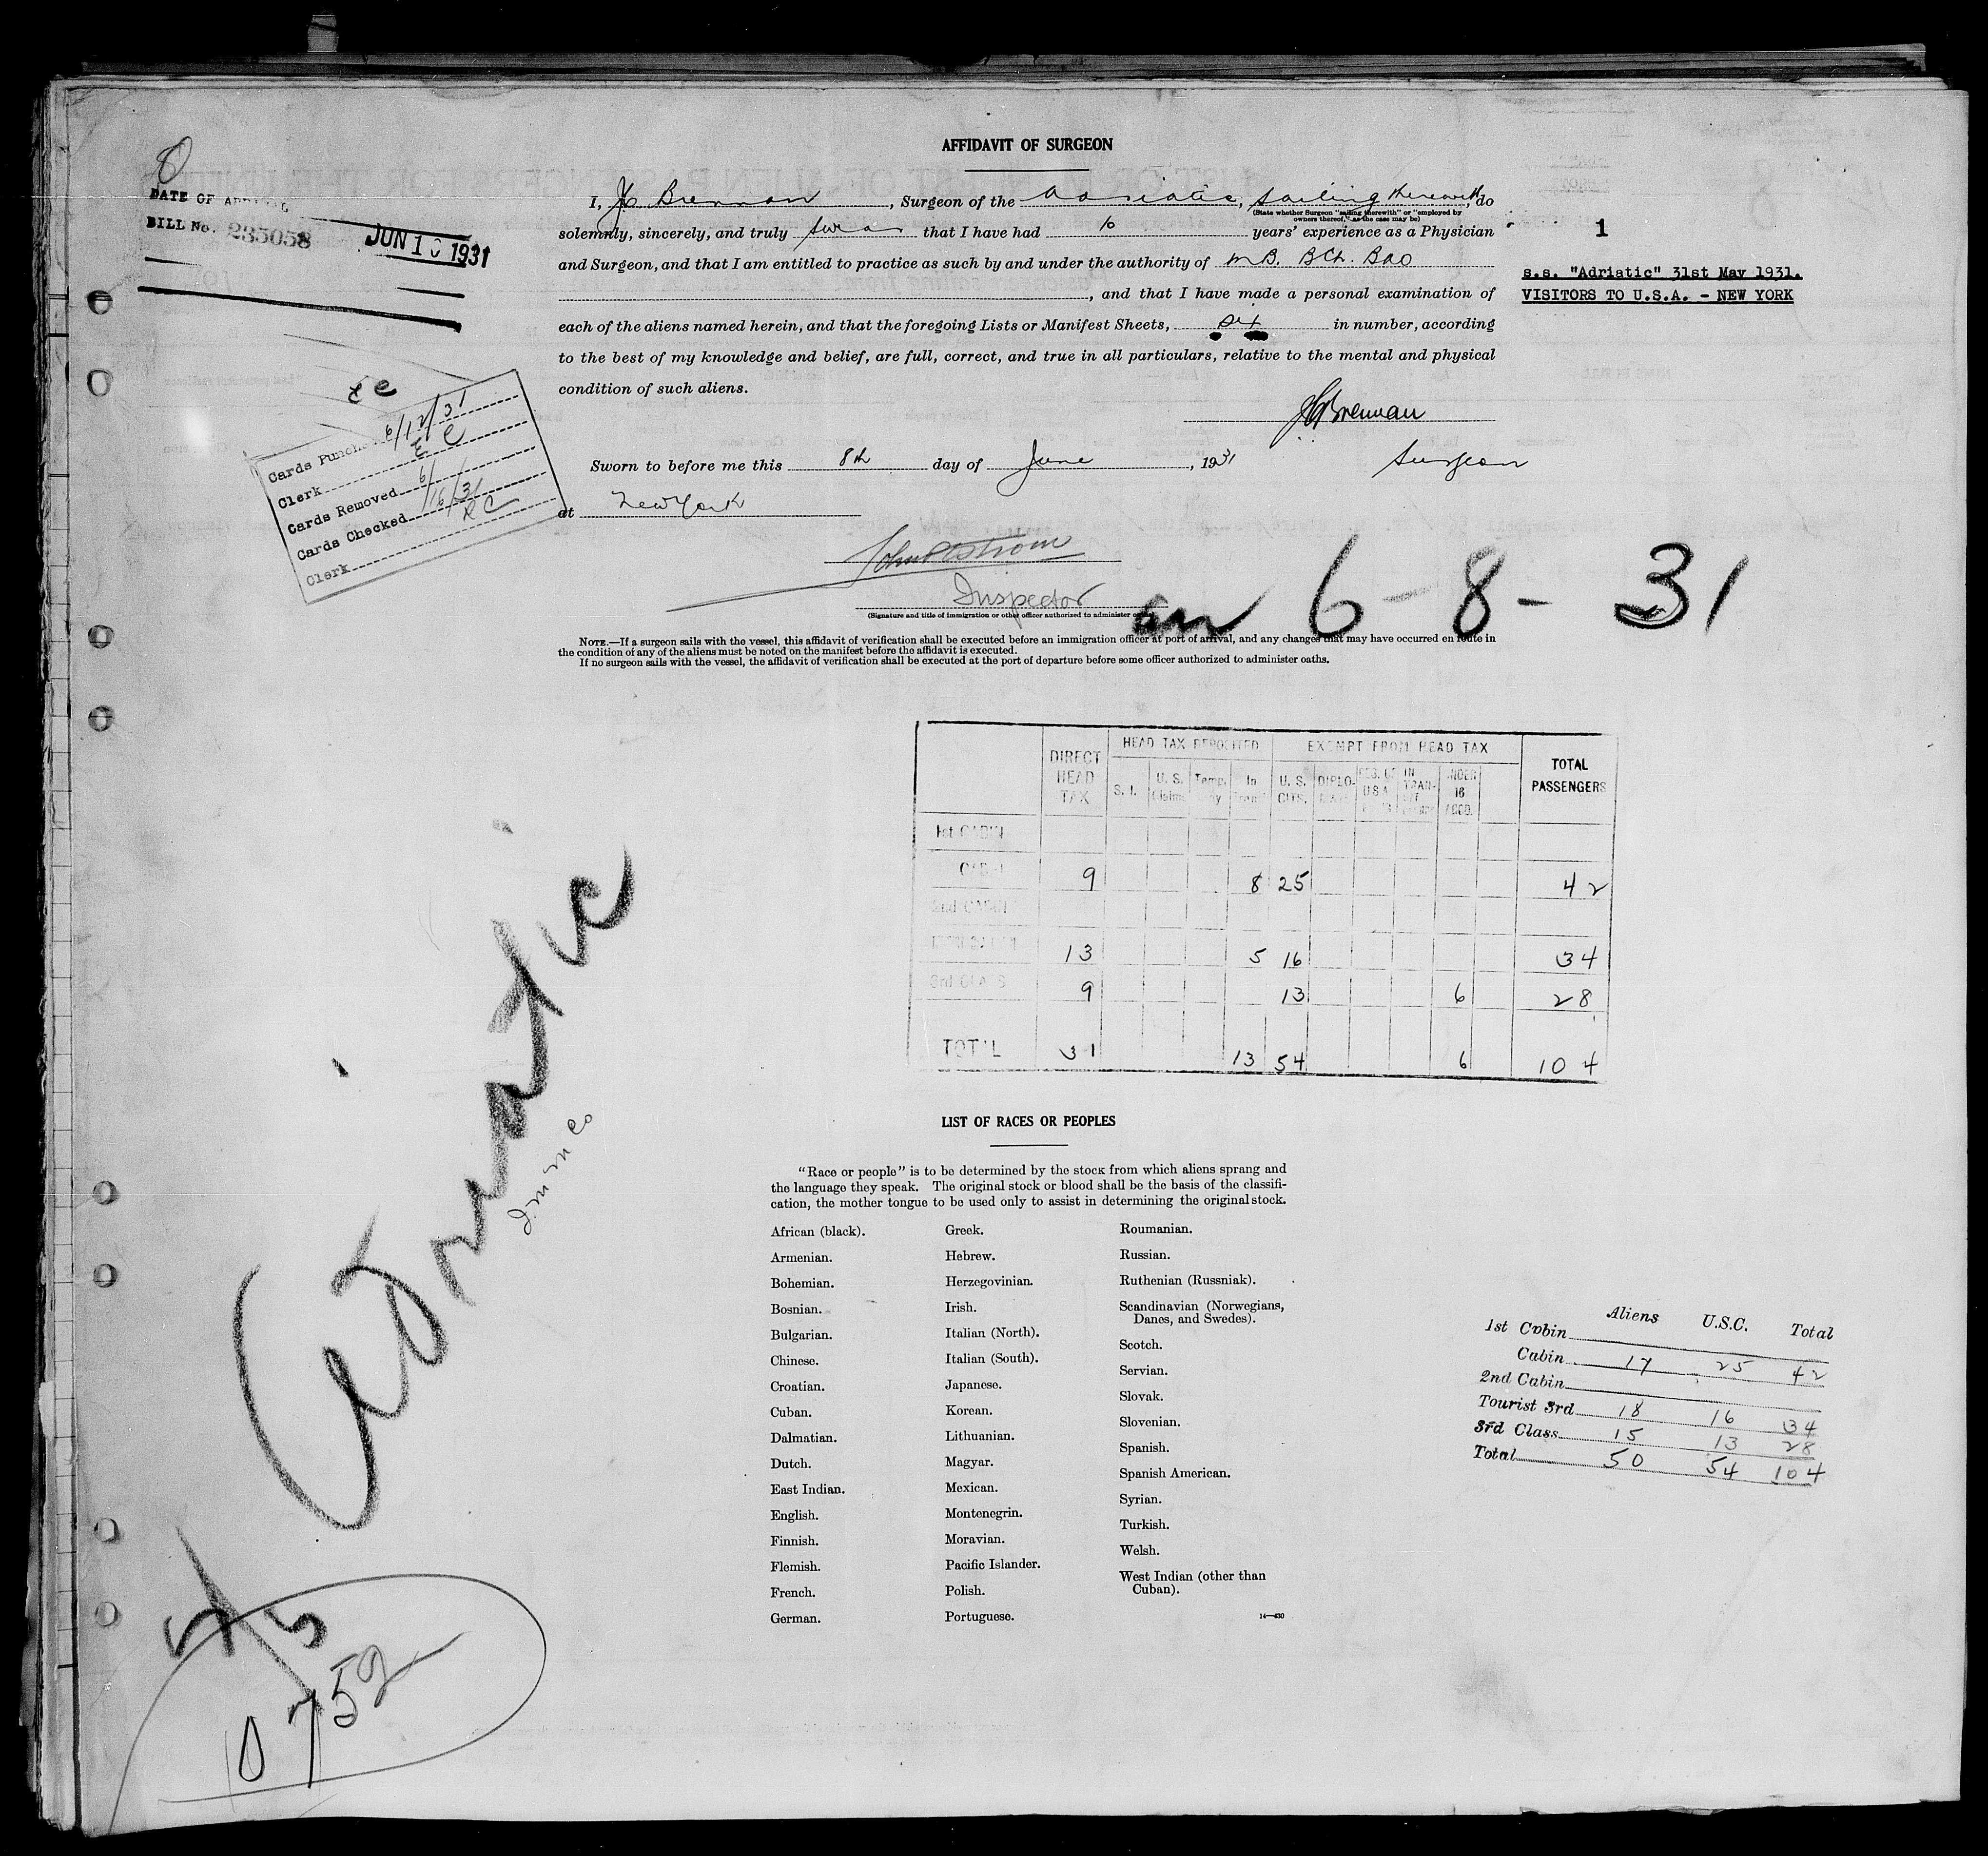 AFFIDAVIT OF SURGEON
DATE OF
BILL No. 235058
JUN 10 1931
I, Brennan, Surgeon of the Adriatic, sailing therewith, do
(State whether Surgeon "sailing therewith" or "employed by
owners thereof," as the case may be)
solemnly, sincerely, and truly swear that I have had 10 years' experience as a Physician
and Surgeon, and that I am entitled to practice as such by and under the authority of M.B. BCh. BAO
, and that I have made a personal examination of
each of the aliens named herein, and that the foregoing Lists or Manifest Sheets, six in number, according
to the best of my knowledge and belief, are full, correct, and true in all particulars, relative to the mental and physical
condition of such aliens.
Brennan
Surgeon
Sworn to before me this 8th day of June, 1931
at New York
Inspector
(Signature and title of immigration or other officer authorized to administer
1
s.s. "Adriatic" 31st May 1931.
VISITORS TO U.S.A. - NEW YORK
EC
Cards Punch 6/12/31
Clerk EC
Cards Removed 6/16/31
Cards Checked
Clerk
6-8-31
NOTE.—If a surgeon sails with the vessel, this affidavit of verification shall be executed before an immigration officer at port of arrival, and any changes that may have occurred en route in
the condition of any of the aliens must be noted on the manifest before the affidavit is executed.
If no surgeon sails with the vessel, the affidavit of verification shall be executed at the port of departure before some officer authorized to administer oaths.
DIRECT HEAD TAX
HEAD TAX DEPOSITED
EXEMPT FROM HEAD TAX
TOTAL PASSENGERS
S. I. U. S. Claims Temp. In U. S. CITS. DIPLO- RES. OF U S A IN TRAN- UNDER 16 ACCD.
1st CABIN
CABIN 9 8 25 42
2nd CABIN
13 5 16 34
3rd CLASS 9 13 6 28
TOTAL 31 13 54 6 104
Adriatic
LIST OF RACES OR PEOPLES
"Race or people" is to be determined by the stock from which aliens sprang and
the language they speak. The original stock or blood shall be the basis of the classifi-
cation, the mother tongue to be used only to assist in determining the original stock.
African (black).
Armenian.
Bohemian.
Bosnian.
Bulgarian.
Chinese.
Croatian.
Cuban.
Dalmatian.
Dutch.
East Indian.
English.
Finnish.
Flemish.
French.
German.
Greek.
Hebrew.
Herzegovinian.
Irish.
Italian (North).
Italian (South).
Japanese.
Korean.
Lithuanian.
Magyar.
Mexican.
Montenegrin.
Moravian.
Pacific Islander.
Polish.
Portuguese.
Roumanian.
Russian.
Ruthenian (Russniak).
Scandinavian (Norwegians,
Danes, and Swedes).
Scotch.
Servian.
Slovak.
Slovenian.
Spanish.
Spanish American.
Syrian.
Turkish.
Welsh.
West Indian (other than
Cuban).
14—430
Aliens U.S.C. Total
1st Cabin
Cabin 17 25 42
2nd Cabin
Tourist 3rd 18 16 34
3rd Class 15 13 28
Total 50 54 104
10752